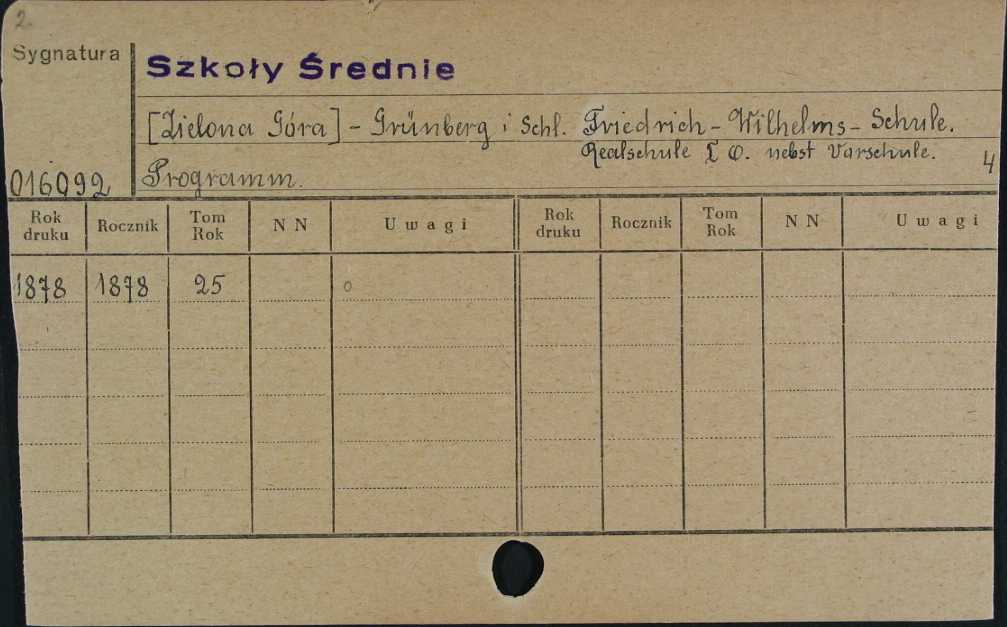 2.
Sygnatura
Szkoły Średnie
[Zielona Góra] - Grünberg i Schl. Friedrich-Wilhelms-Schule.
Realschule I O. nebst Vorschule. 4
016092 Programm.
Rok druku Rocznik Tom Rok N N Uwagi Rok druku Rocznik Tom Rok N N Uwagi
1878 1878 25 o